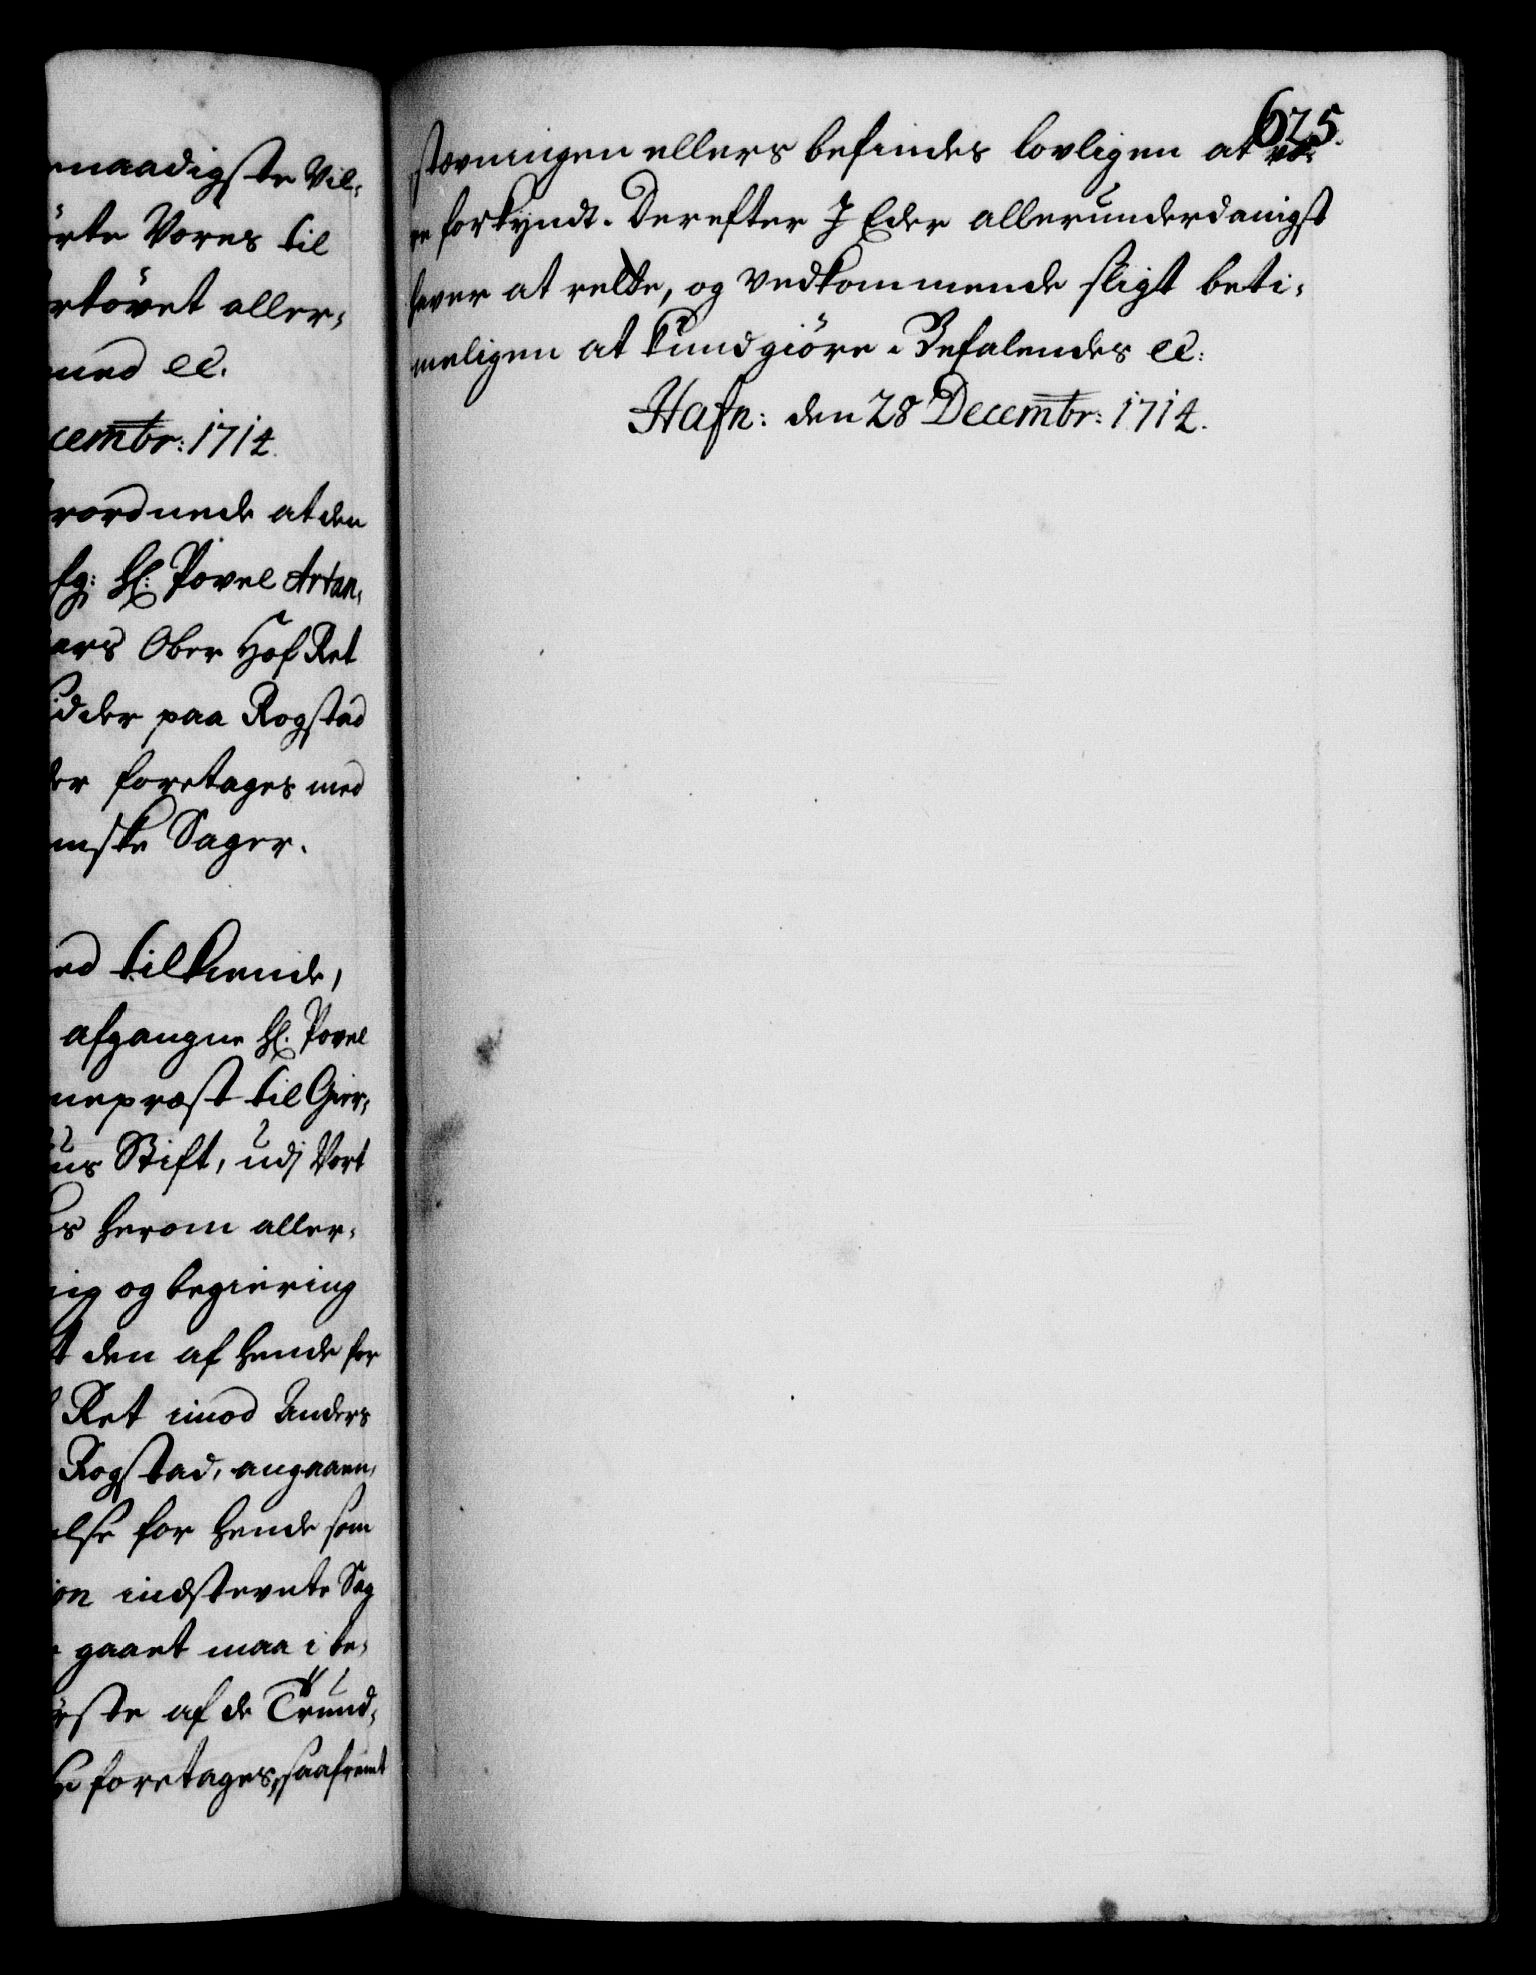 naadigste Vil-
örte Vores til
rtövet aller-
med etc.
cembr: 1714
rordnede at den
sg: Hl: Povel Artan-
ers Ober Hof Ret
idder paa Rogstad
der foretages med
mske Sager.
ed tilkiende,
afgangne Hl. Povel
nepræst til Gier-
uus Stift, udj Vort
es herom aller-
nig og begiering
t den af hende for
Ret imod Anders
Rogstad, angaaen-
else for hende som
ion indstevnte Sag
gaaet maa i be-
yste af de Trund-
foretages, saafremt
625.
stævningen ellers befindes lovligen at væ-
re forkyndt. Derefter I Eder allerunderdanigst
haver at rette, og vedkommende sligt beti-
meligen at kundgiöre. Befalendes etc:
Hafn: den 28 Decembr: 1714.